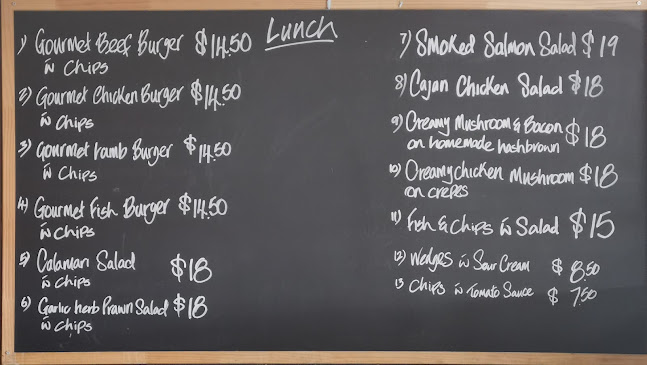 Lunch
1) Gourmet Beef Burger $14.50
w̄ Chips
2) Gourmet Chicken Burger $14.50
w̄ Chips
3) Gourmet Lamb Burger $14.50
w̄ Chips
4) Gourmet Fish Burger $14.50
w̄ Chips
5) Calamari Salad $18
w̄ Chips
6) Garlic herb Prawn Salad $18
w̄ Chips
7) Smoked Salmon Salad $19
8) Cajan Chicken Salad $18
9) Creamy Mushroom & Bacon $18
on homemade hashbrown
10) Creamy chicken Mushroom $18
on crepes
11) Fish & Chips w̄ Salad $15
12) Wedges w̄ Sour Cream $8.50
13 Chips w̄ Tomato Sauce $7.50